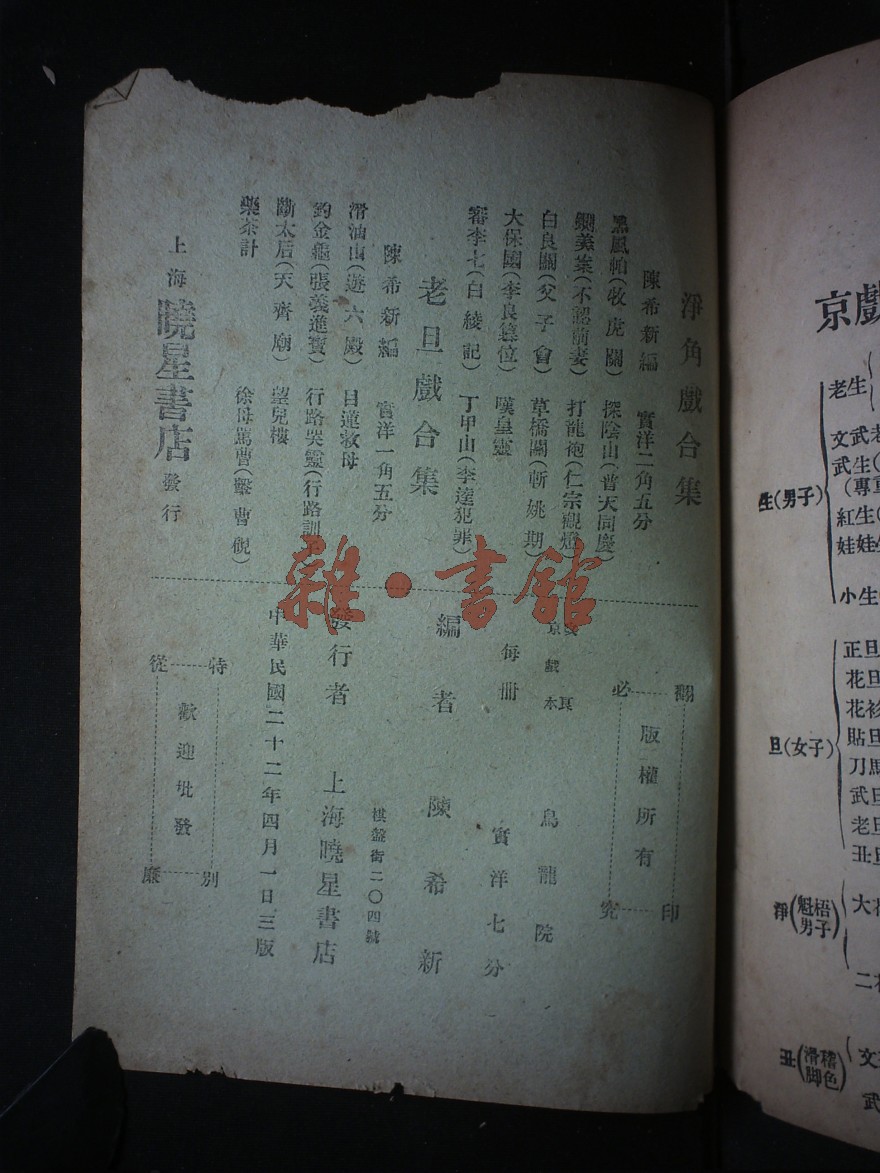 淨角戲合集
陳希新編　實洋二角五分
黑風帕(牧虎關)　探陰山(普天同慶)
鍘美案(不認前妻)　打龍袍(仁宗觀燈)
白良關(父子會)　草橋關(斬姚期)
大保國(李良篡位)　嘆皇靈
審李七(白綾記)　丁甲山(李逵犯罪)
老旦戲合集
陳希新編　實洋一角五分
滑油山(遊六殿)　目蓮救母
釣金龜(張義進寶)　行路哭靈(行路訓子)
斷太后(天齊廟)　望兒樓
藥茶計　徐母罵曹(擊曹硯)
上海曉星書店發行
翻印必究
版權所有
京戲　烏龍院
每冊　實洋七分
編者　陳希新
棋盤街二〇四號
發行者　上海曉星書店
中華民國二十二年四月一日三版
特別從廉
歡迎批發
雜·書館
京戲
生(男子)
老生
文武老
武生(
(專重
紅生(
娃娃生
小生
旦(女子)
正旦
花旦
花衫
貼旦
刀馬
武旦
老旦
丑旦
淨(魁梧男子)
大花
二花
丑(滑稽脚色)
文
武